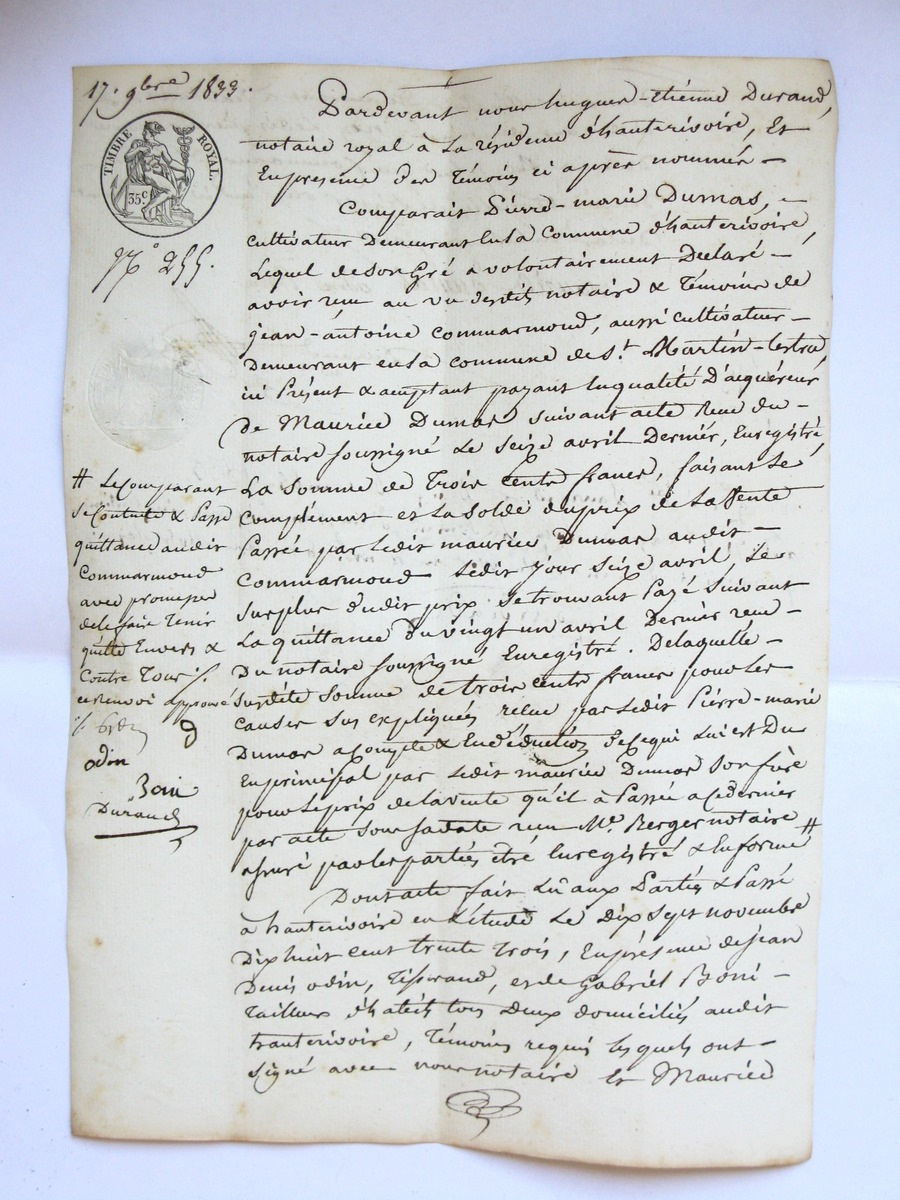 17. 9bre 1833.
TIMBRE ROYAL.
35 c.
N° 255.
Pardevant nous hugues-étienne Durand,
notaire royal à la résidence d'hauterivoire, Et
En présence des Témoins ci après nommés —
Comparait Pierre-marie Dumas, —
cultivateur Demeurant En la commune d'hauterivoire,
Lequel de son Gré a volontairement Déclaré —
avoir reçu au vu desdits notaire & Témoins de
jean-antoine Commarmond, aussi cultivateur —
Demeurant en la commune de St. Martin-lestra,
ici Présent & acceptant payant En qualité D'acquéreur
De Maurice Dumas suivant acte Reçu du —
notaire soussigné Le Seize avril Dernier, Enregistré,
La somme de Trois Cents francs, faisant Le
Complément et la Solde du prix de La Vente
Passée par Ledit maurice Dumas audit —
Commarmond Ledit jour Seize avril, Le
Surplus dudit prix Se trouvant Payé Suivant
La quittance Du vingt un avril Dernier reçue —
Du notaire Soussigné Enregistré. De laquelle —
Susdite Somme de trois cents francs pour Les
causes Sus expliquées reçue par Ledit Pierre-marie
Dumas a Compte & En Déduction de Ce qui Lui est Du
En principal par Ledit maurice Dumas Son frère
pour Le prix de la vente qu'il à Passée a Ce dernier
par acte Sous Sa date reçu Me. Berger notaire
assuré par les parties être Enregistré & En forme #
Dont acte fait Lû aux Parties & Passé
à hauterivoire en L'étude Le Dix Sept novembre
Dix huit cent trente Trois, En présence de jean
Denis odin, Tisserand, et de Gabriel Boni —
Tailleur d'habits tous Deux domiciliés audit
hauterivoire, Témoins requis lesquels ont —
Signé avec nous notaire Et Maurice
# Le Comparant
Se Contente & Passe
quittance audit
Commarmond
avec promesse
de le faire Tenir
quitte Envers &
Contre Tous /.
ce renvoi approuvé
odin
Boni
Durand